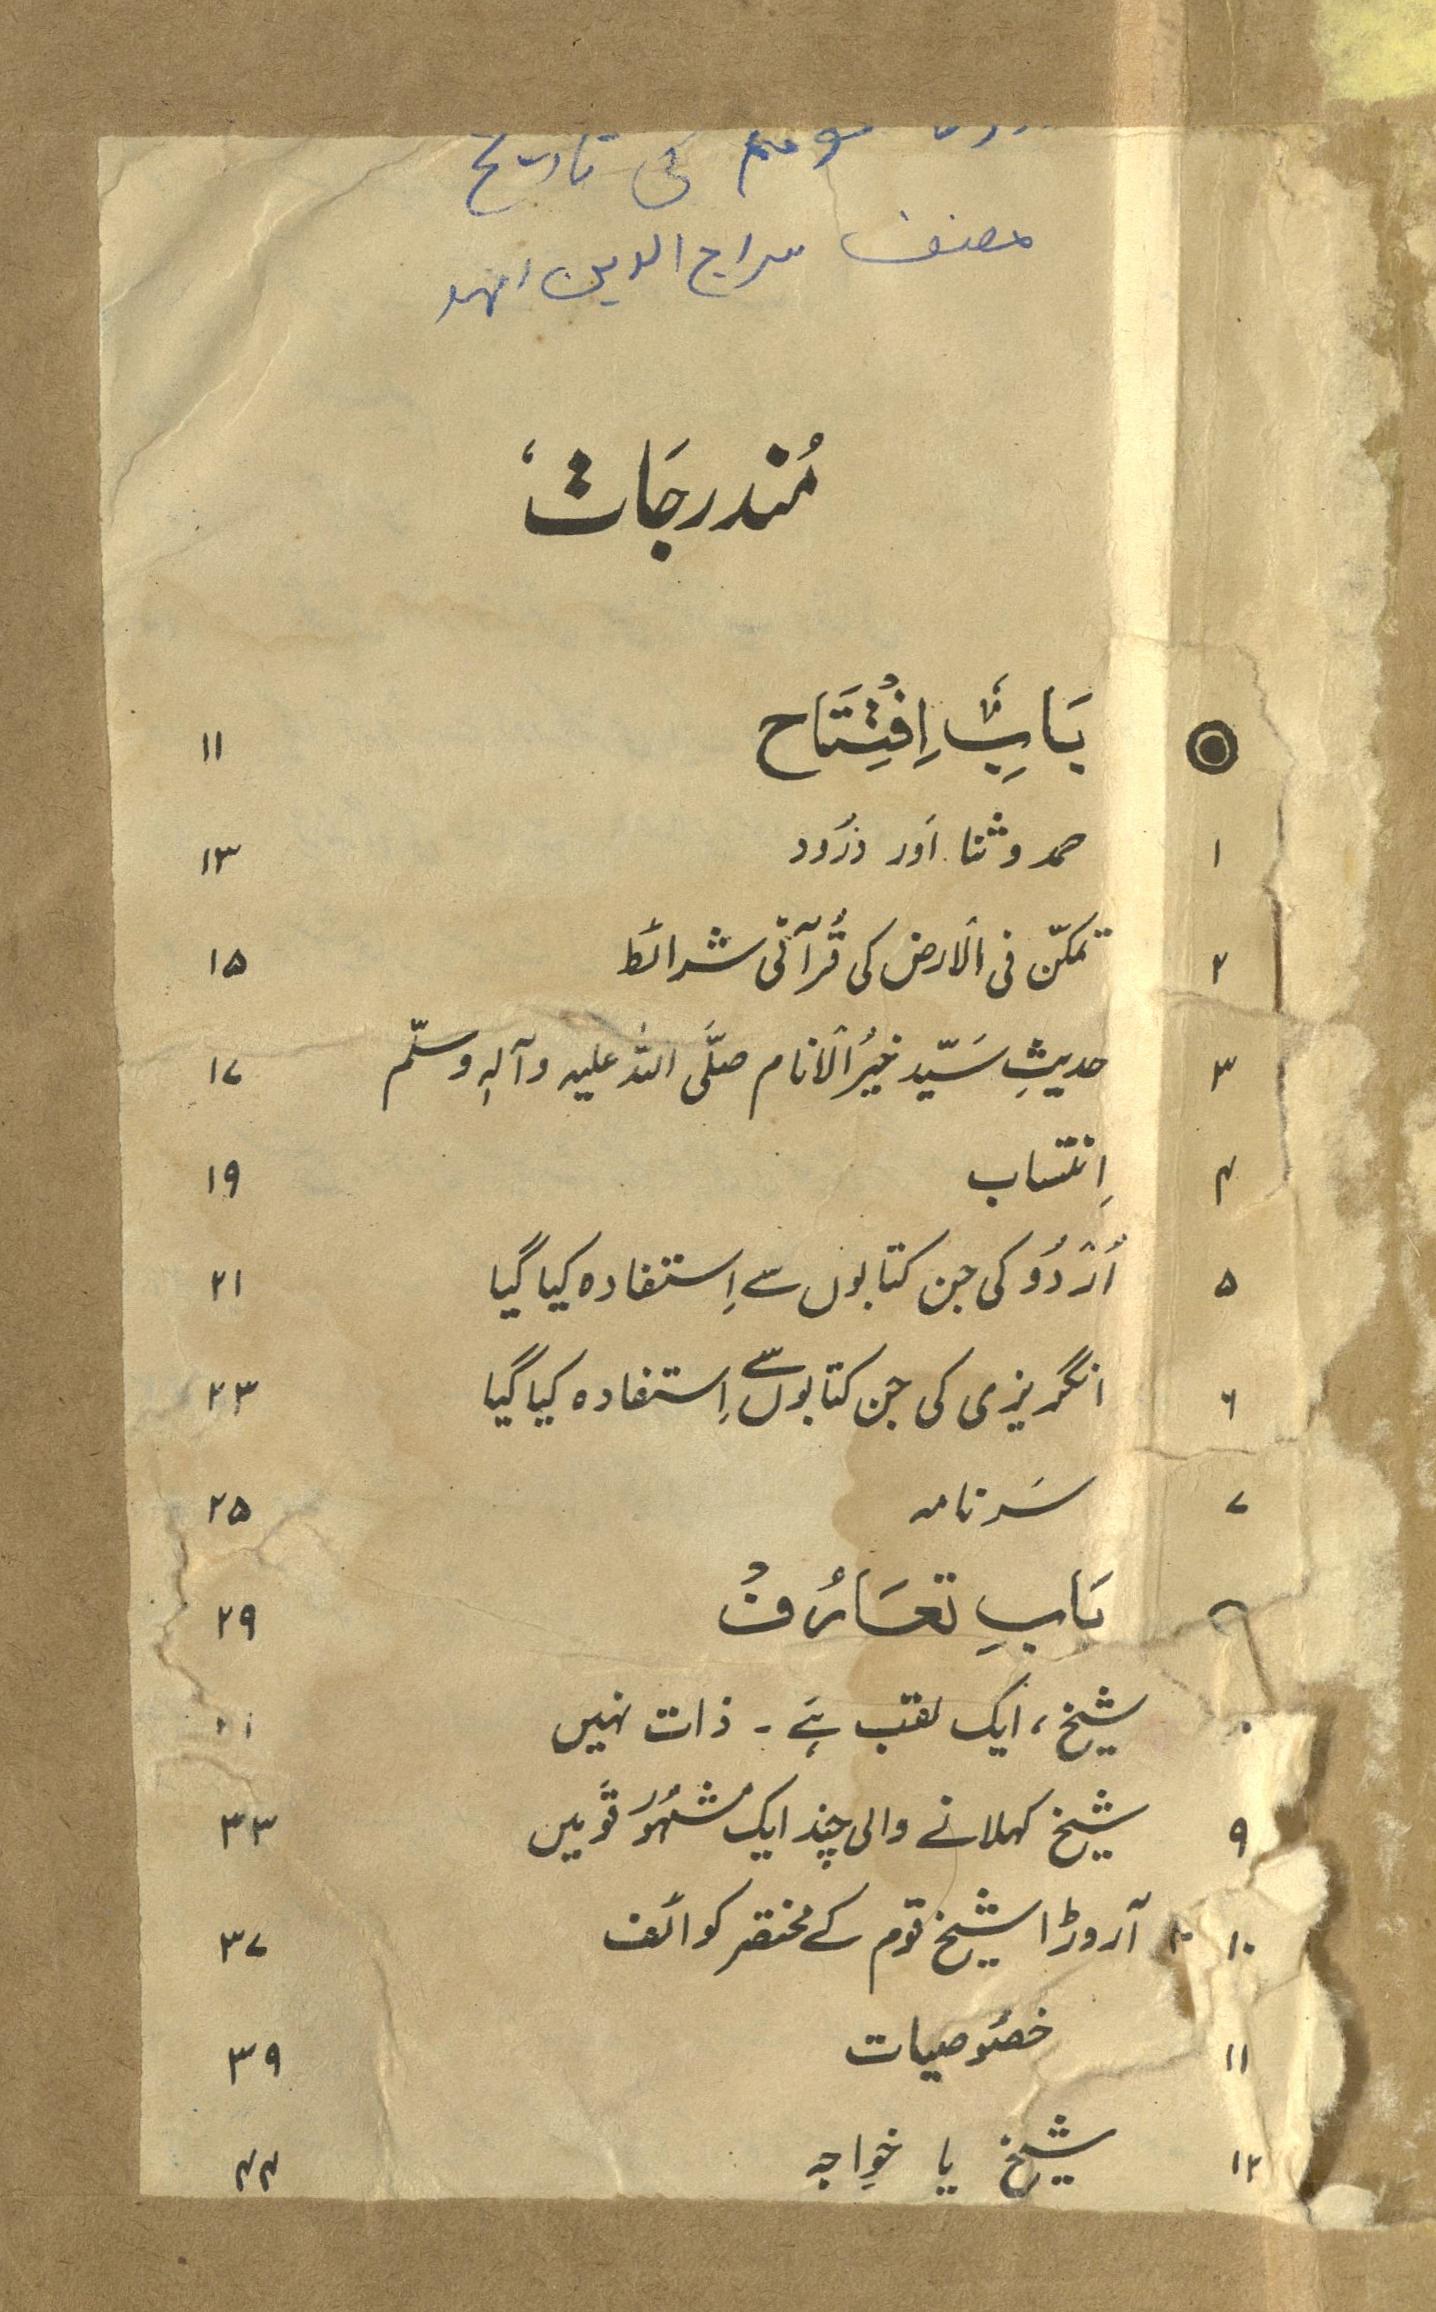 قوم کی تاریخ
مصنف سراج الدین احمد
مُندرجَات
بَابِ اِفْتِتَاح ۱۱
۱ حمد و ثنا اَور دُرُود ۱۳
۲ تمکّن فی الارض کی قُرآنی شرائط ۱۵
۳ حدیثِ سَیّد خیرُ الانام صلَّی اللہ علیہ وآلہٖ وسلّم ۱۷
۴ اِنتساب ۱۹
۵ اُرْدُو کی جن کتابوں سے اِستفادہ کیا گیا ۲۱
۶ انگریزی کی جن کتابوں سے اِستفادہ کیا گیا ۲۳
۷ سَرنامہ ۲۵
بَابِ تعَارُف ۲۹
شیخ، ایک لقب ہَے ۔ ذات نہیں
۹ شیخ کہلانے والی چند ایک مشہُور قَومیں ۳۳
۱۰ آروڑا شیخ قوم کے مختصر کوائف ۳۷
۱۱ خصُوصیات ۳۹
۱۲ شیخ یا خواجہ ۴۴